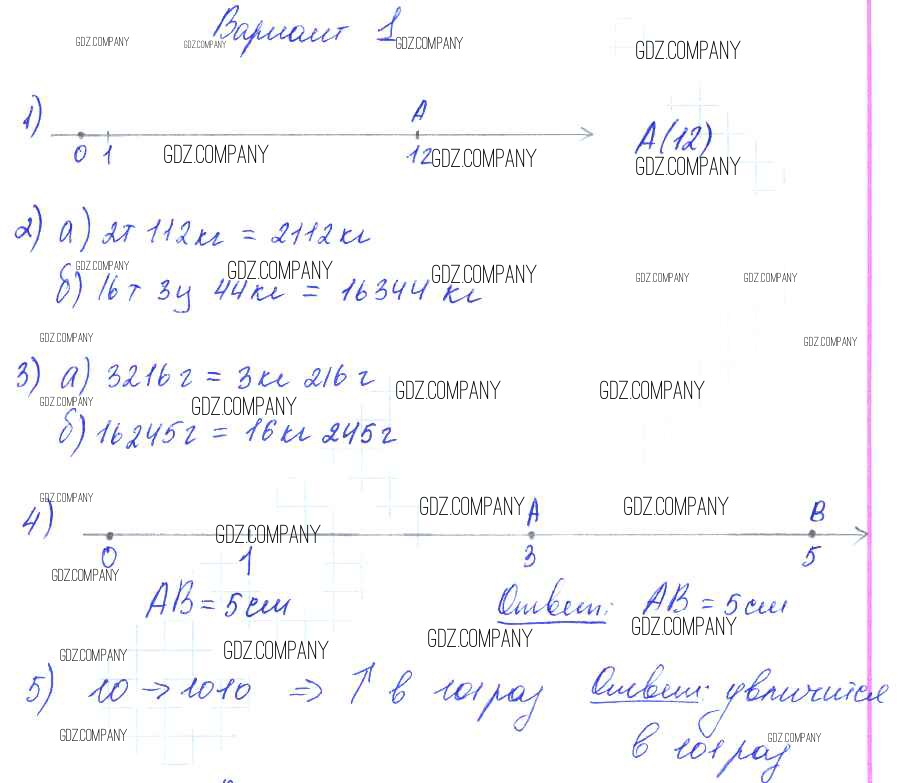 Вариант 1
GDZ.COMPANY GDZ.COMPANY GDZ.COMPANY GDZ.COMPANY
1) A
0 1 12 A(12)
GDZ.COMPANY GDZ.COMPANY GDZ.COMPANY
2) а) 2т 112кг = 2112кг
GDZ.COMPANY GDZ.COMPANY GDZ.COMPANY GDZ.COMPANY GDZ.COMPANY
б) 16т 3ц 44кг = 16344 кг
GDZ.COMPANY GDZ.COMPANY
3) а) 3216г = 3кг 216г
GDZ.COMPANY GDZ.COMPANY GDZ.COMPANY GDZ.COMPANY
б) 16245г = 16кг 245г
GDZ.COMPANY GDZ.COMPANY GDZ.COMPANY
4) A B
GDZ.COMPANY
0 1 3 5
GDZ.COMPANY
AB = 5см Ответ: AB = 5см
GDZ.COMPANY GDZ.COMPANY GDZ.COMPANY GDZ.COMPANY
5) 10 → 1010 ⇒ ↑ в 101 раз Ответ: увеличится
в 101 раз
GDZ.COMPANY GDZ.COMPANY